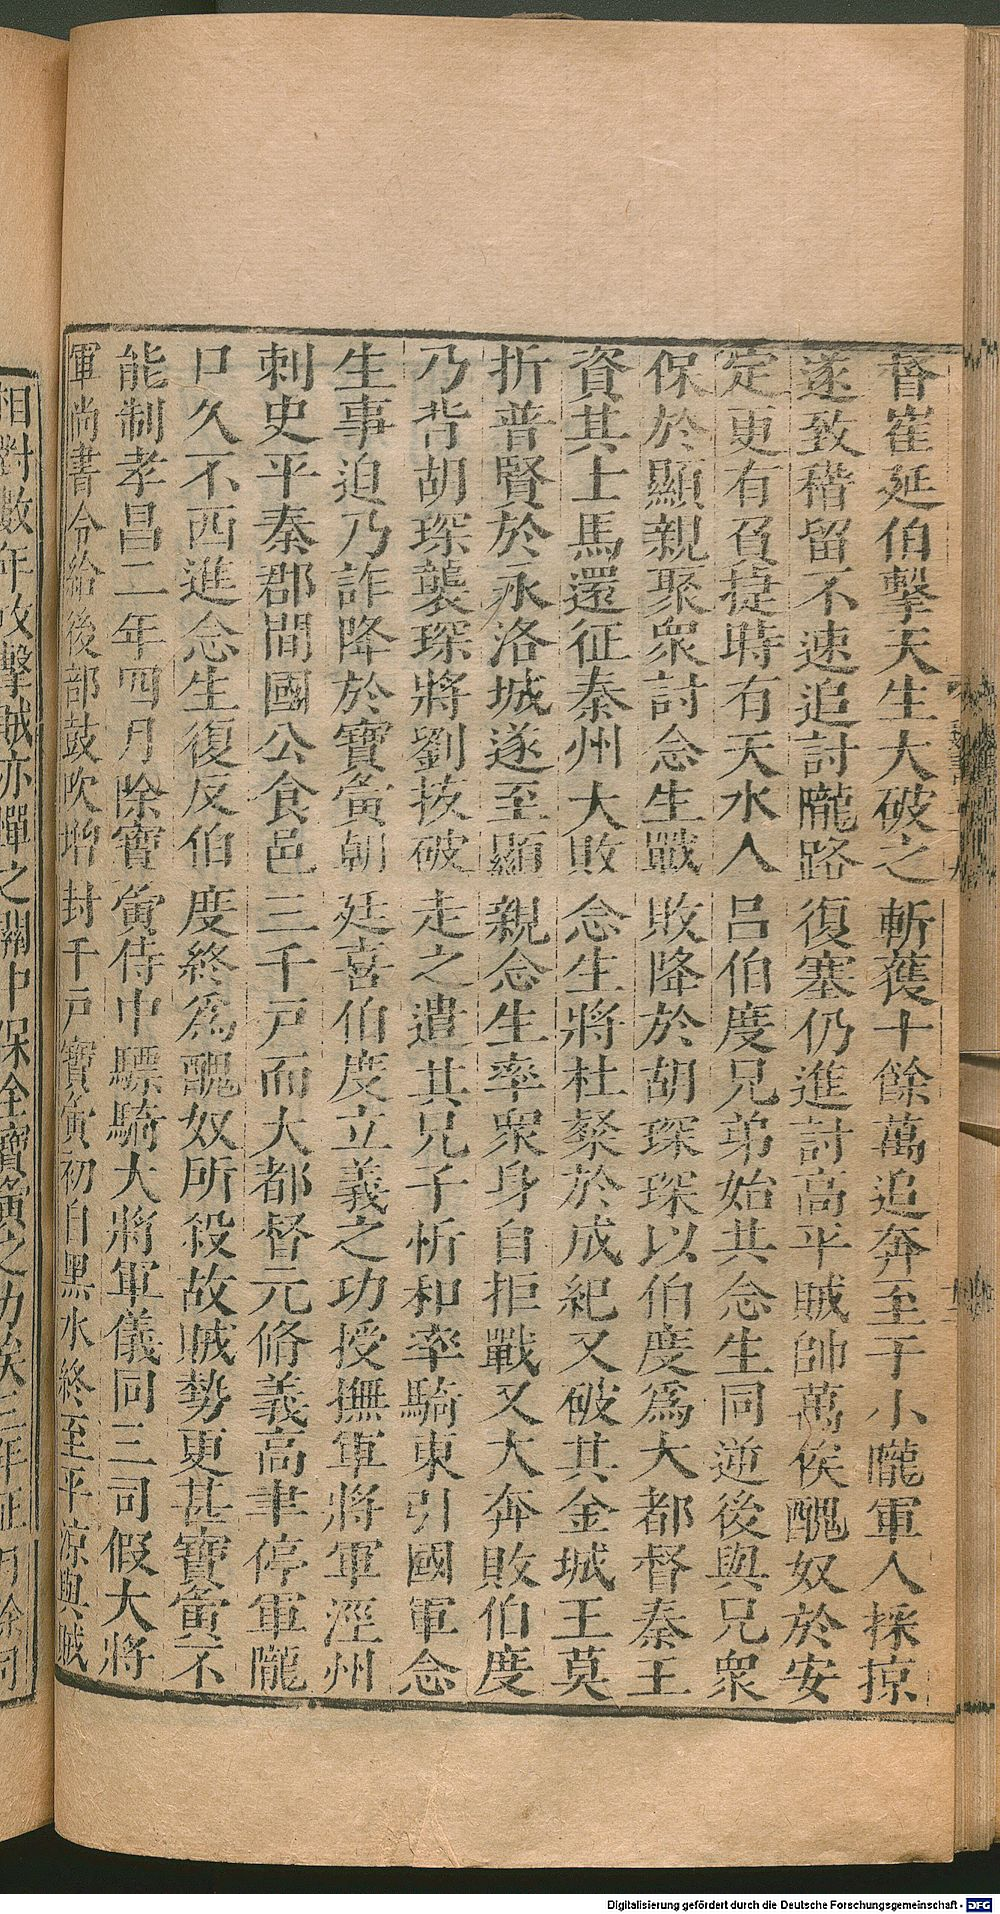 督崔延伯擊天生大破之斬獲十餘萬追奔至于小隴軍人採掠
遂致稽留不速追討隴路復塞仍進討高平賊帥萬俟醜奴於安
定更有負捷時有天水人呂伯度兄弟始共念生同逆後與兄衆
保於顯親聚衆討念生戰敗降於胡琛琛以伯度爲大都督秦王
資其士馬還征秦州大敗念生將杜粲於成紀又破其金城王莫
折普賢於永洛城遂至顯親念生率衆身自拒戰又大奔敗伯度
乃背胡琛襲琛將劉拔破走之遣其兄子忻和率騎東引國軍念
生事迫乃詐降於寶寅朝廷喜伯度立義之功授撫軍將軍涇州
刺史平秦郡開國公食邑三千戸而大都督元脩義高聿停軍隴
口久不西進念生復反伯度終爲醜奴所殺故賊勢更甚寶寅不
能制孝昌二年四月除寶寅侍中驃騎大將軍儀同三司假大將
軍尚書令給後部鼓吹增封千戸寶寅初自黑水終至平涼與賊
相對數年攻擊賊亦憚之關中保全寶寅之力矣三年正月除司
Digitalisierung gefördert durch die Deutsche Forschungsgemeinschaft - DFG